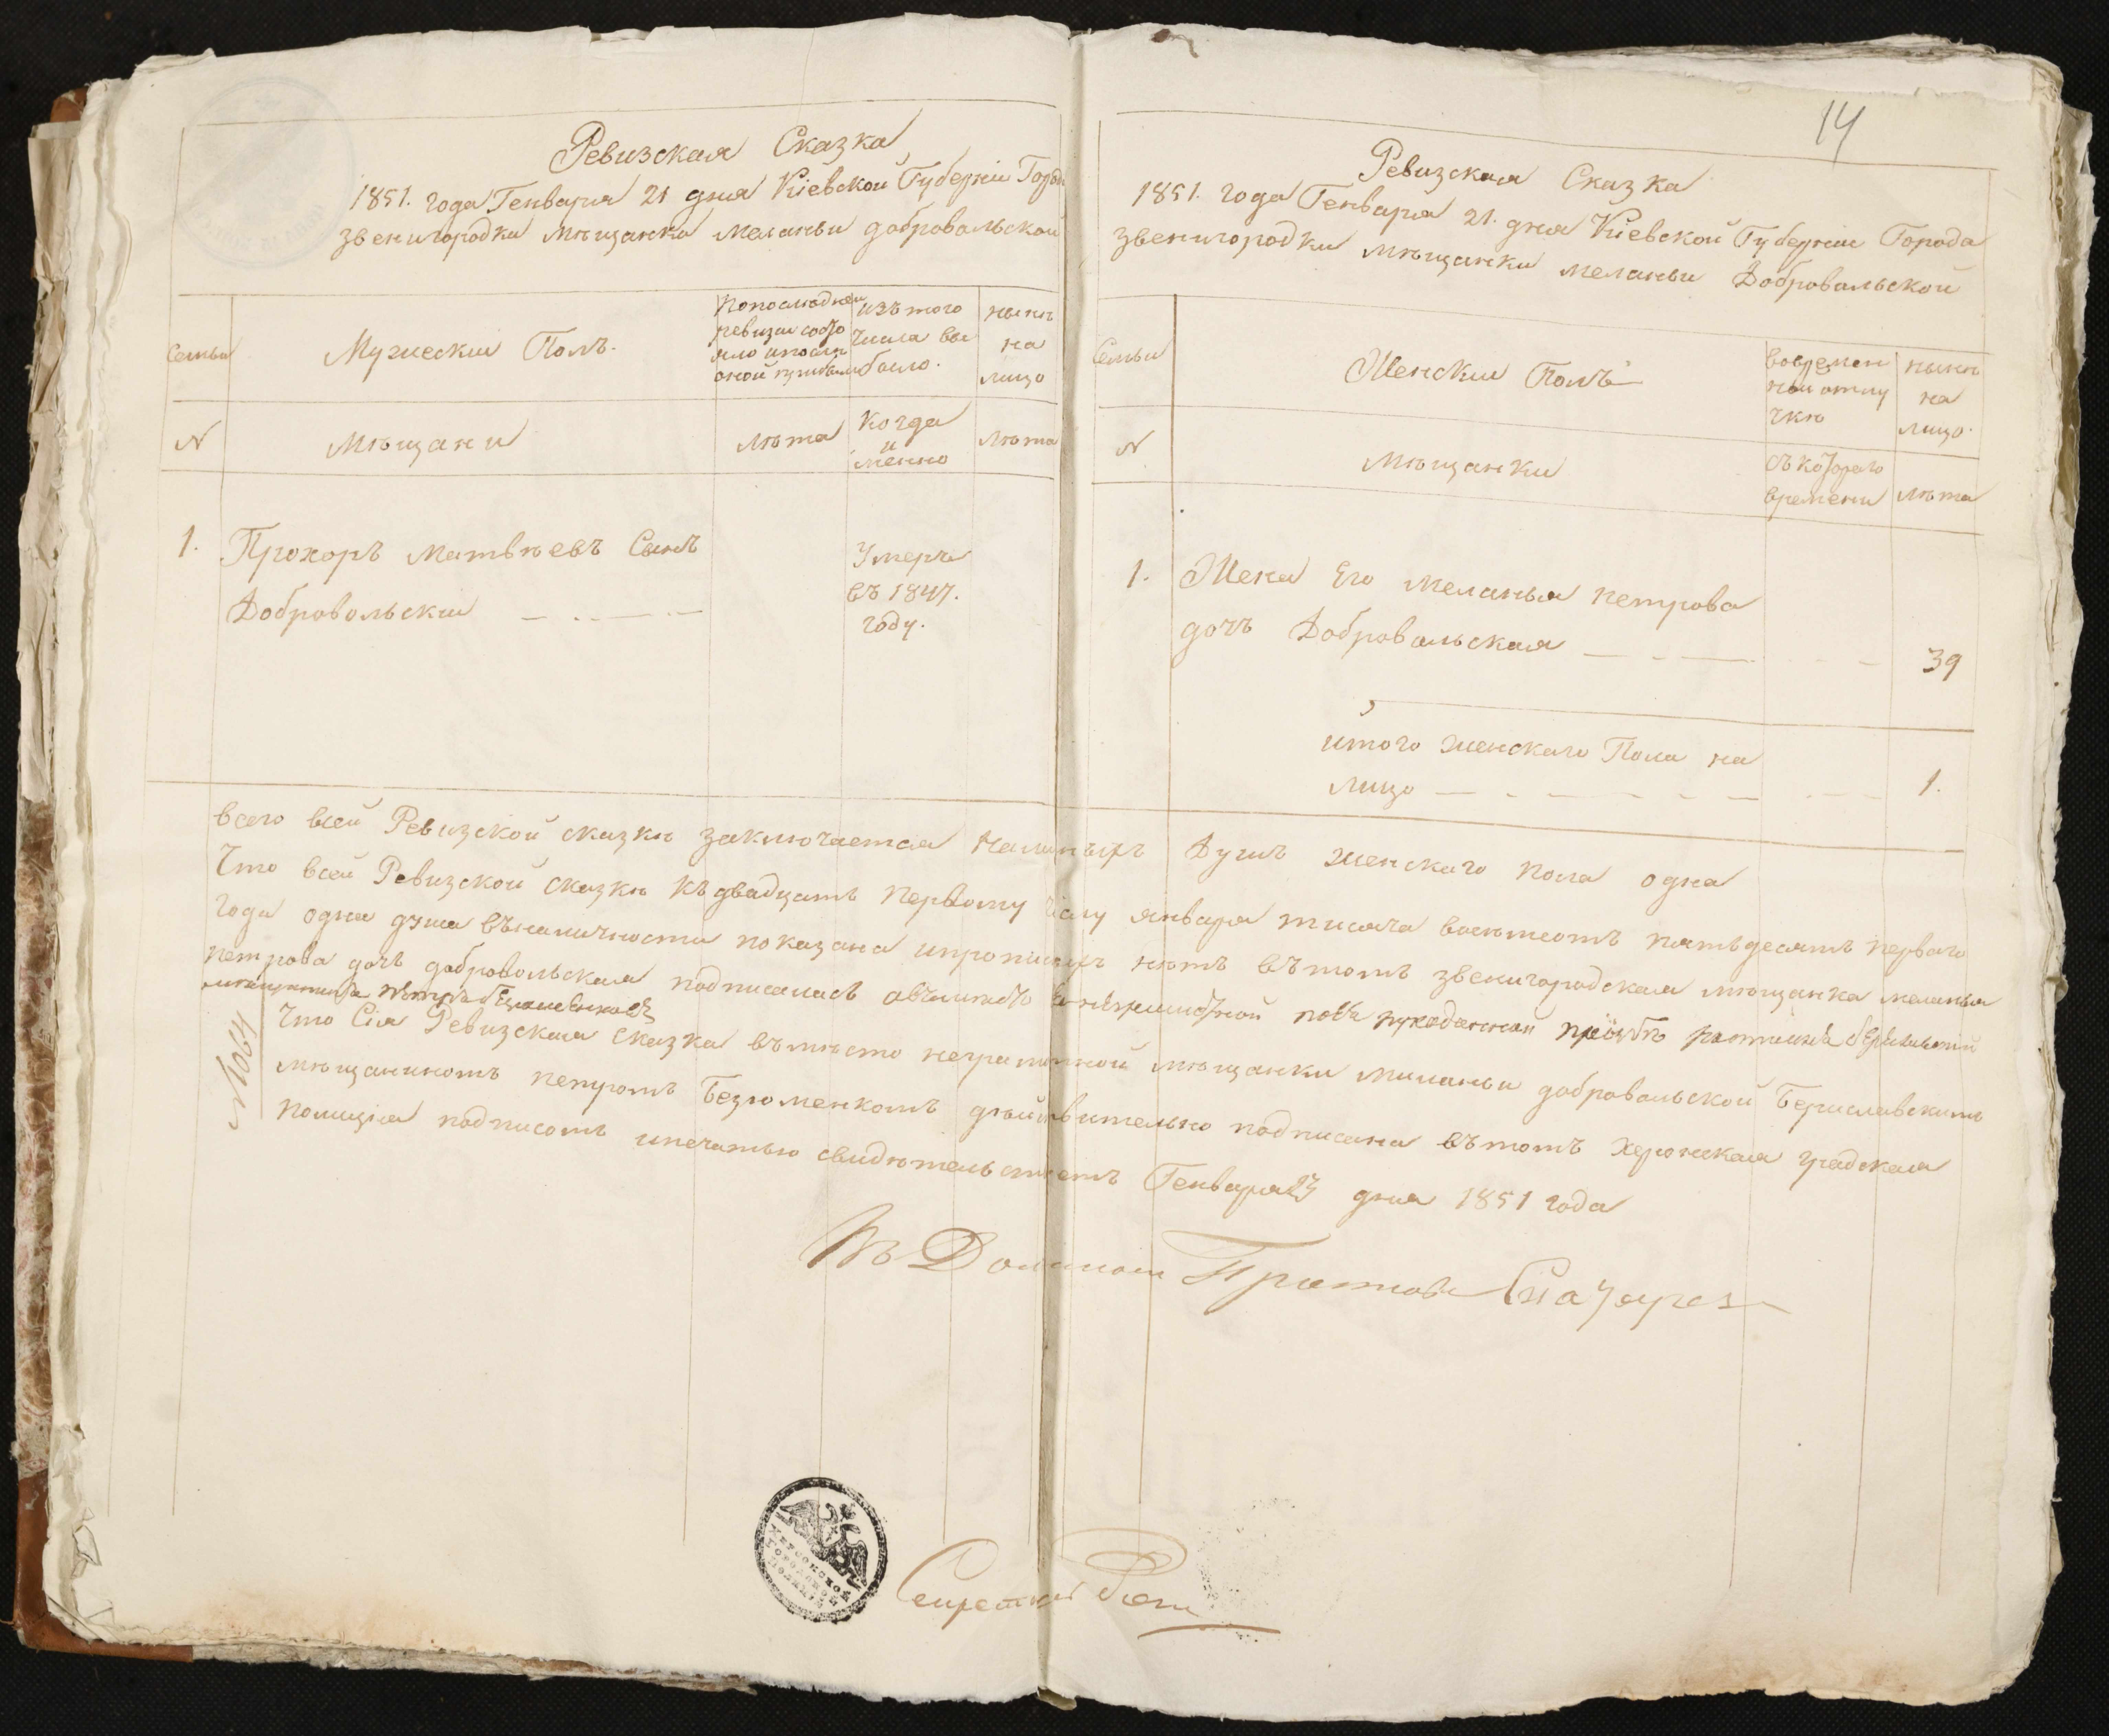 Ревизская Сказка
1851. года Генваря 21 дня Кіевской Губерніи Города
звенигородки мѣщанки меланьи добровольской
Семьи
Мужескии Полъ.
Попослюдней
ревизіи состо
яло ипослѣ
оной прибыло
изъ того
числа вы
было.
нынѣ
на
лицо
N
Мѣщани
Лѣта
Когда
и
менно
Лѣта
1. Прохоръ матвѣевъ Сынъ
Добровольскии
Умеръ
въ 1847.
году.
14
Ревизская Сказка
1851. года Генваря 21. дня Кіевской Губерніи Города
Звенигородки мѣщанки меланьи Добровольской
Семьи
Женскии Полъ
вовремен
ной отлу
чкѣ
нынѣ
на
лицо.
N
мѣщанки
съ котораго
времени
лѣта
1. Жена Его меланья петрова
дочъ Добровольская 39
итого женскаго Пола на
лицо 1.
всего всей Ревизской сказкѣ заключается Налицныхъ Душъ женскаго пола одна
Что всей Ревизской сказкѣ къ двадцать первому числу января тисяча восемсотъ пятьдесятъ перваго
года одна душа въналичности показана ипрописныхъ нѣтъ въ томъ звенигородская мѣщанка меланья
петрова дочъ добровольская подписалась
№ 1064
Что Сія Ревизская сказка вмѣсто неграмотной мѣщанки миланьи добровольской Бериславскимъ
мѣщаниномъ петромъ Безюменкомъ дѣйствительно подписана въ томъ Херсонская градская
полиція подписомъ ипечатью свидѣтельствуетъ Генваря 23 дня 1851 года
ХЕРСОНСКОЙ
ГОРОДСКОЙ
ПОЛИЦІИ
Секретарь